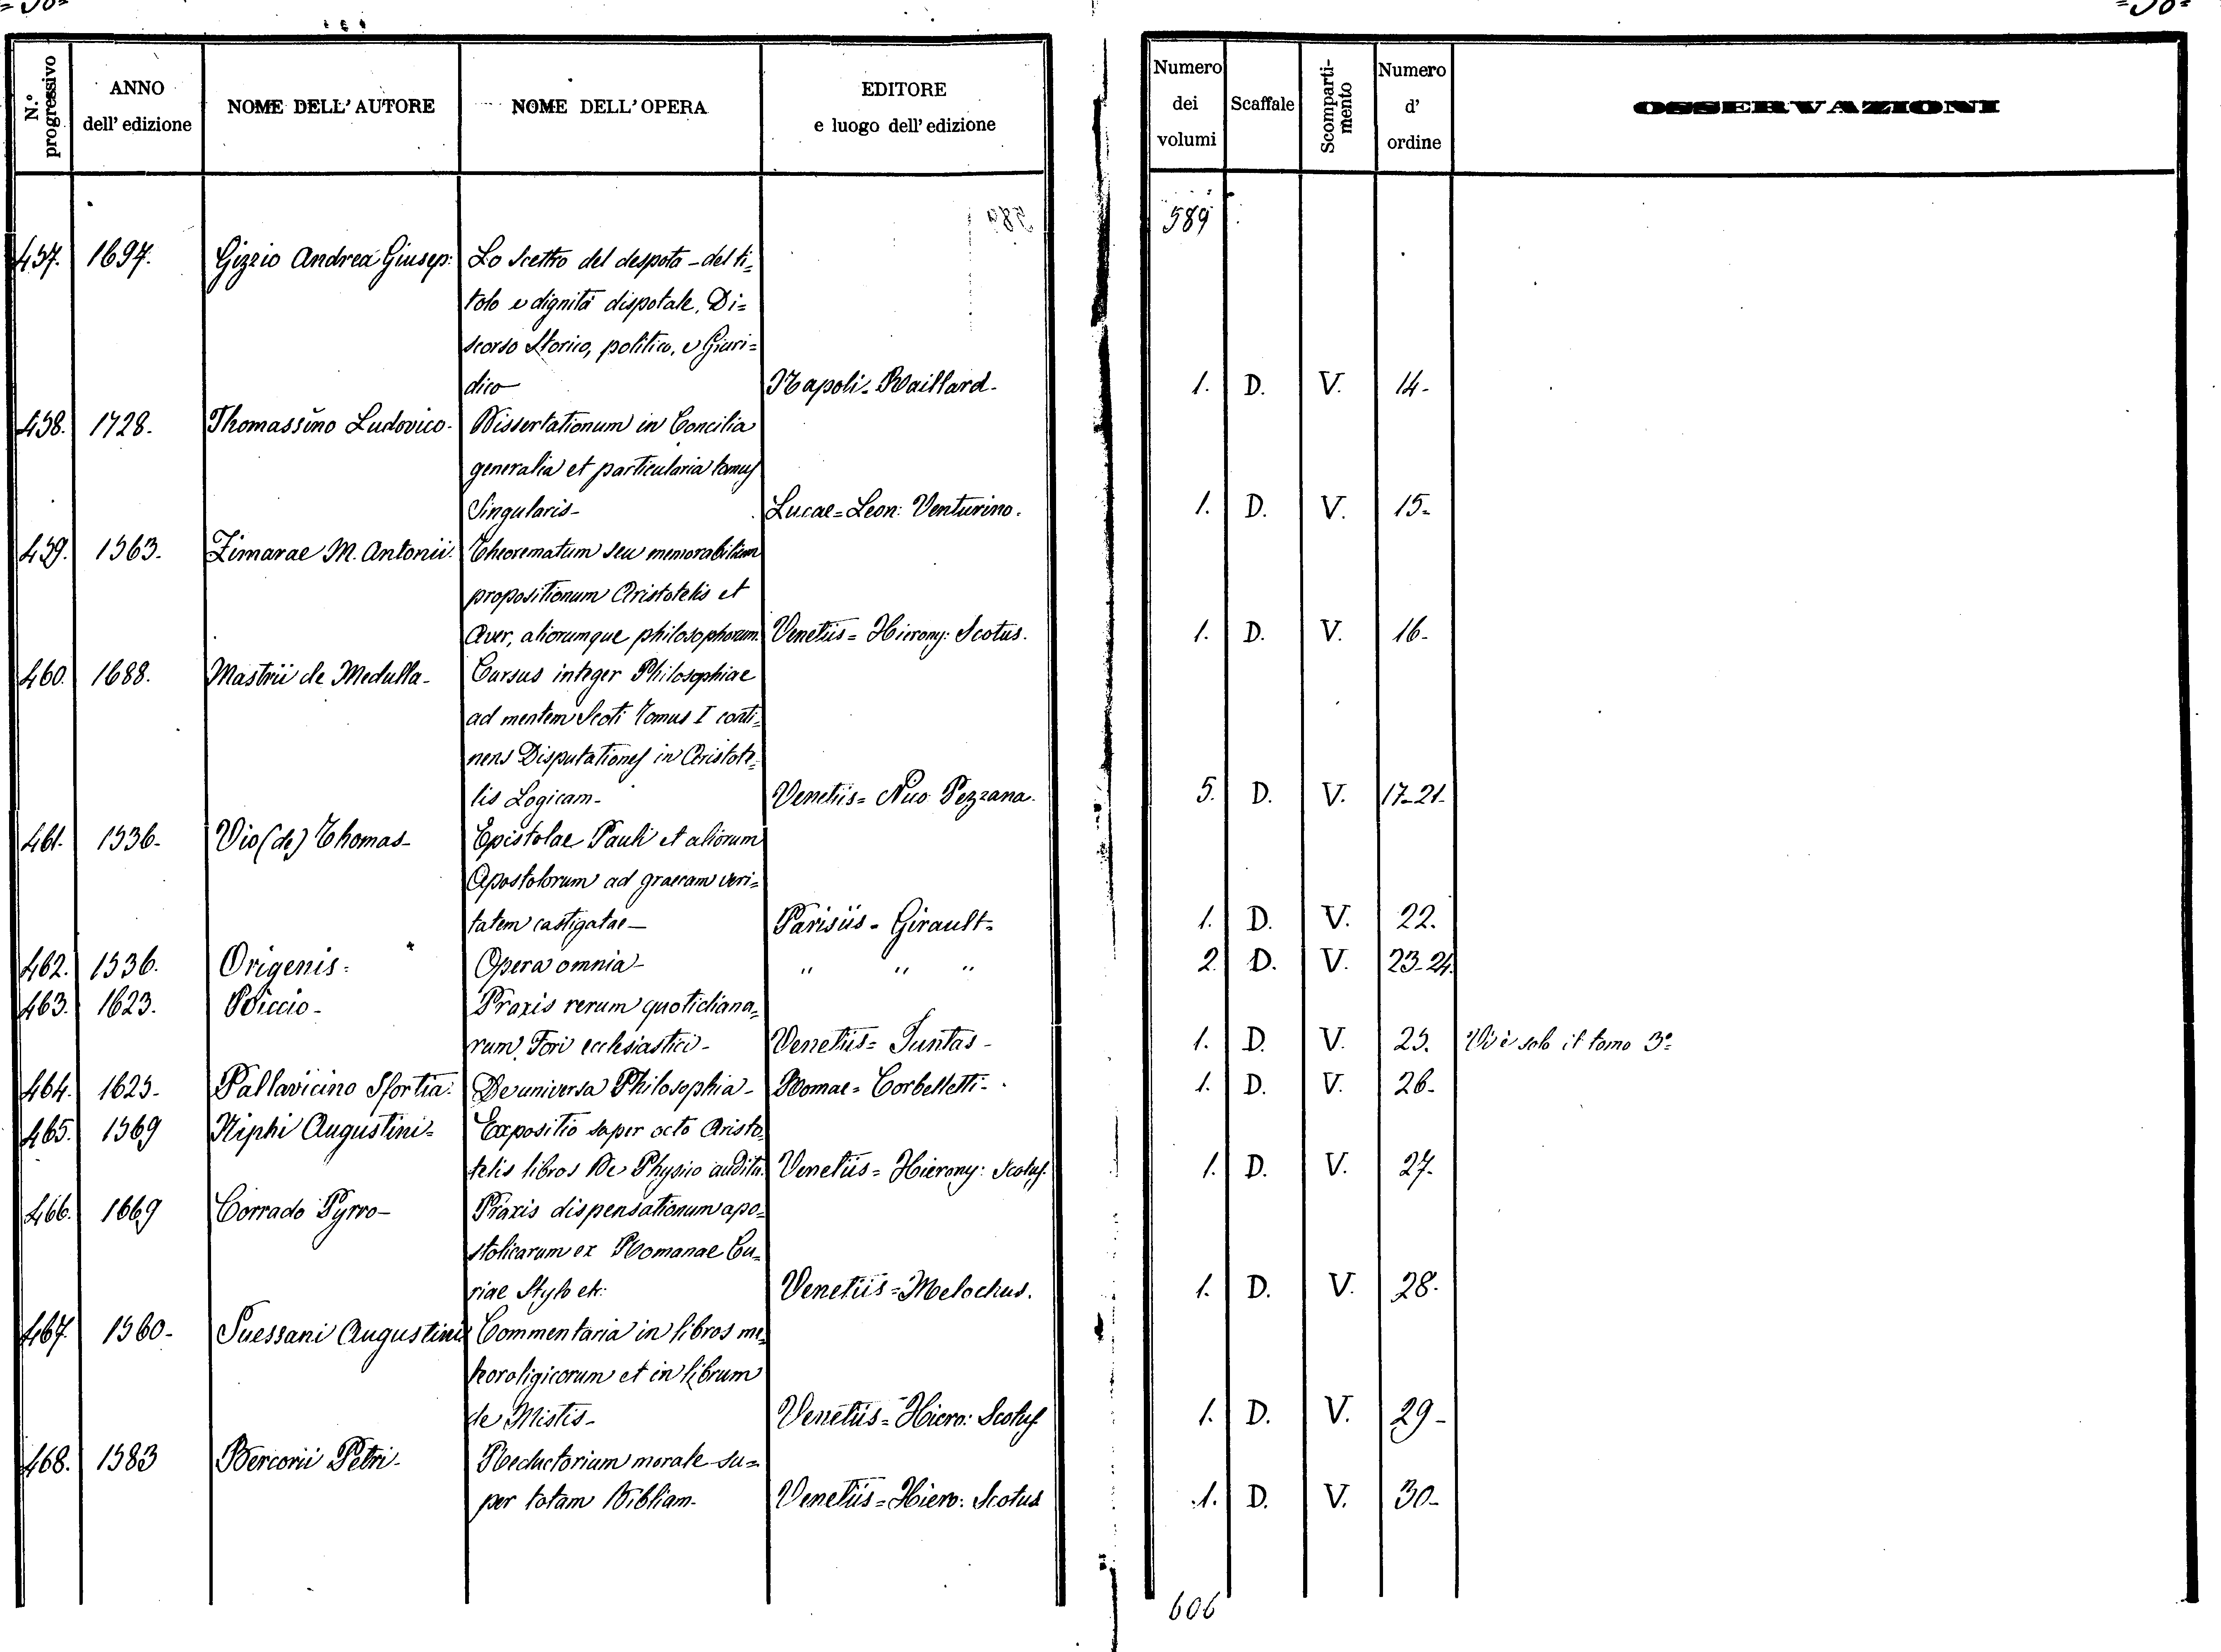 N.° progressivo
ANNO dell' edizione
NOME DELL' AUTORE
NOME DELL' OPERA
EDITORE e luogo dell' edizione
Numero dei volumi
Scaffale
Scomparti-mento
Numero d' ordine
OSSERVAZIONI
589
457. 1697. Gizzio Andrea Giusep: Lo Scettro del despota - del ti=
tolo e dignità dispotale, Di=
scorso Storico, politico, e Giuri=
dico Napoli= Raillard. 1. D. V. 14.
458. 1728. Thomassino Ludovico. Dissertationum in Concilia
generalia et particularia tomus
Singularis- Lucae= Leon: Venturino. 1. D. V. 15.
459. 1563. Zimarae M. Antonii. Theorematum seu memorabilium
propositionum Aristotelis et
Aver, aliorumque philosophorum. Venetiis= Hierony: Scotus. 1. D. V. 16.
460. 1688. Mastrii de Medulla- Cursus integer Philosophiae
ad mentem Scoti Tomus I conti=
nens Disputationes in Aristote=
lis Logicam- Venetiis= Nico Pezzana. 5. D. V. 17-21.
461. 1536. Vio (de) Thomas- Epistolae Pauli et aliorum
Apostolorum ad graecam veri=
tatem castigatae- Parisiis- Girault= 1. D. V. 22.
462. 1536. Origenis= Opera omnia- " " " 2. D. V. 23-24.
463. 1623. Riccio- Praxis rerum quotidiana=
rum Fori ecclesiastici- Venetiis= Juntas- 1. D. V. 25. Vi è solo il tomo 3°
464. 1625. Pallavicino Sfortia. De universa Philosophia- Romae= Corbelletti- 1. D. V. 26.
465. 1569 Niphi Augustini= Expositio super octo Aristo=
telis libros De Physico auditu. Venetiis= Hierony: Scotus. 1. D. V. 27.
466. 1669 Corrado Pyrro- Praxis dispensationum apo=
stolicarum ex Romanae Cu=
riae Stylo etc: Venetiis= Melochus. 1. D. V. 28.
467. 1560- Suessani Augustini Commentaria in libros me=
teoroligicorum et in librum
de Mistis- Venetiis= Hiero: Scotus 1. D. V. 29-
468. 1583 Bercorii Petri- Reductorium morale su=
per totam Bibliam- Venetiis= Hiero: Scotus 1. D. V. 30-
606